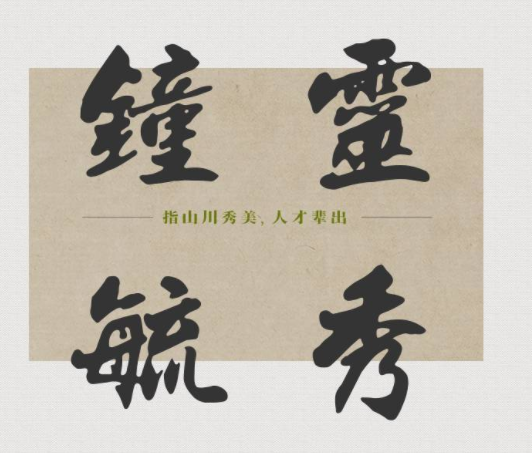 鐘靈
指山川秀美，人才辈出
毓秀